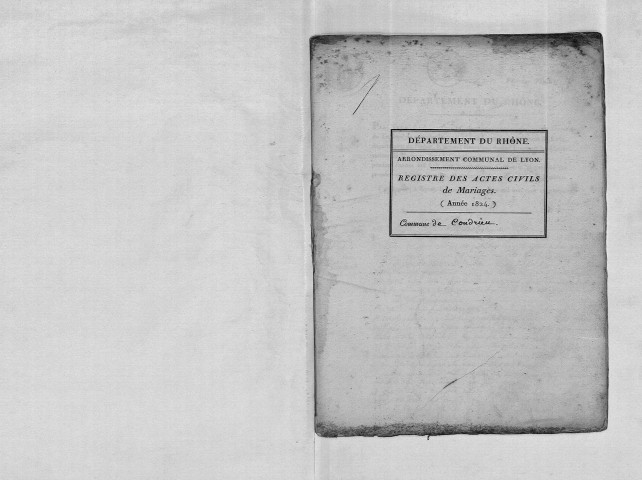 DÉPARTEMENT DU RHÔNE.
ARRONDISSEMENT COMMUNAL DE LYON.
REGISTRE DES ACTES CIVILS
de Mariages.
( Année 1824. )
Commune de Condrieu.